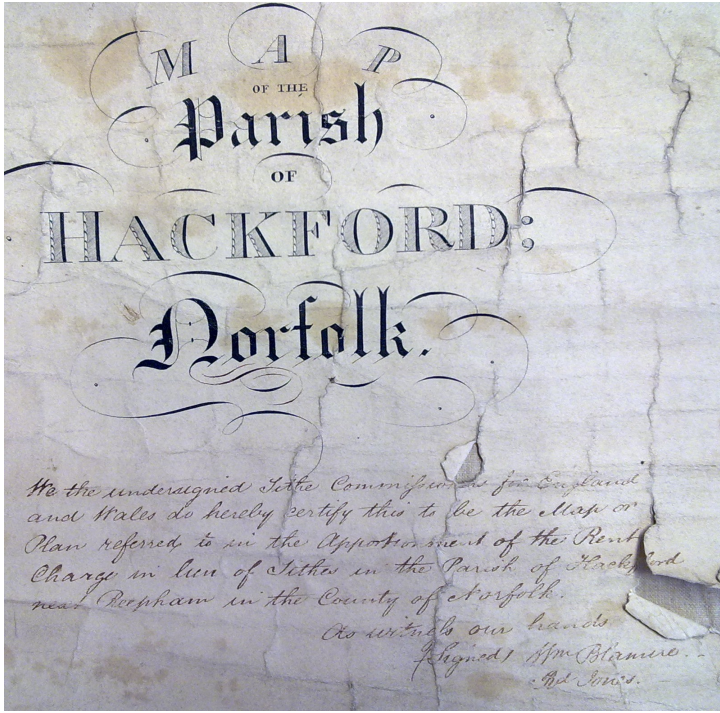 MAP
OF THE
Parish
OF
HACKFORD;
Norfolk.
We the undersigned Tithe Commissioners for England
and Wales do hereby certify this to be the Map or
Plan referred to in the Apportionment of the Rent
Charge in lieu of Tithes in the Parish of Hackford
near Reepham in the County of Norfolk.
As witness our hands
(Signed) Wm Blamire.
Rd Jones.